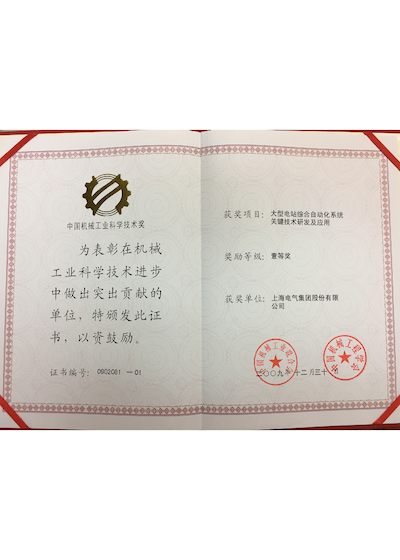 中国机械工业科学技术奖
为表彰在机械
工业科学技术进步
中做出突出贡献的
单位，特颁发此证
书，以资鼓励。
证书编号：0902061 —01
获奖项目：大型电站综合自动化系统
关键技术研发及应用
奖励等级：壹等奖
获奖单位：上海电气集团股份有限
公司
中国机械工业联合会
中国机械工程学会
二〇〇九年十二月三十